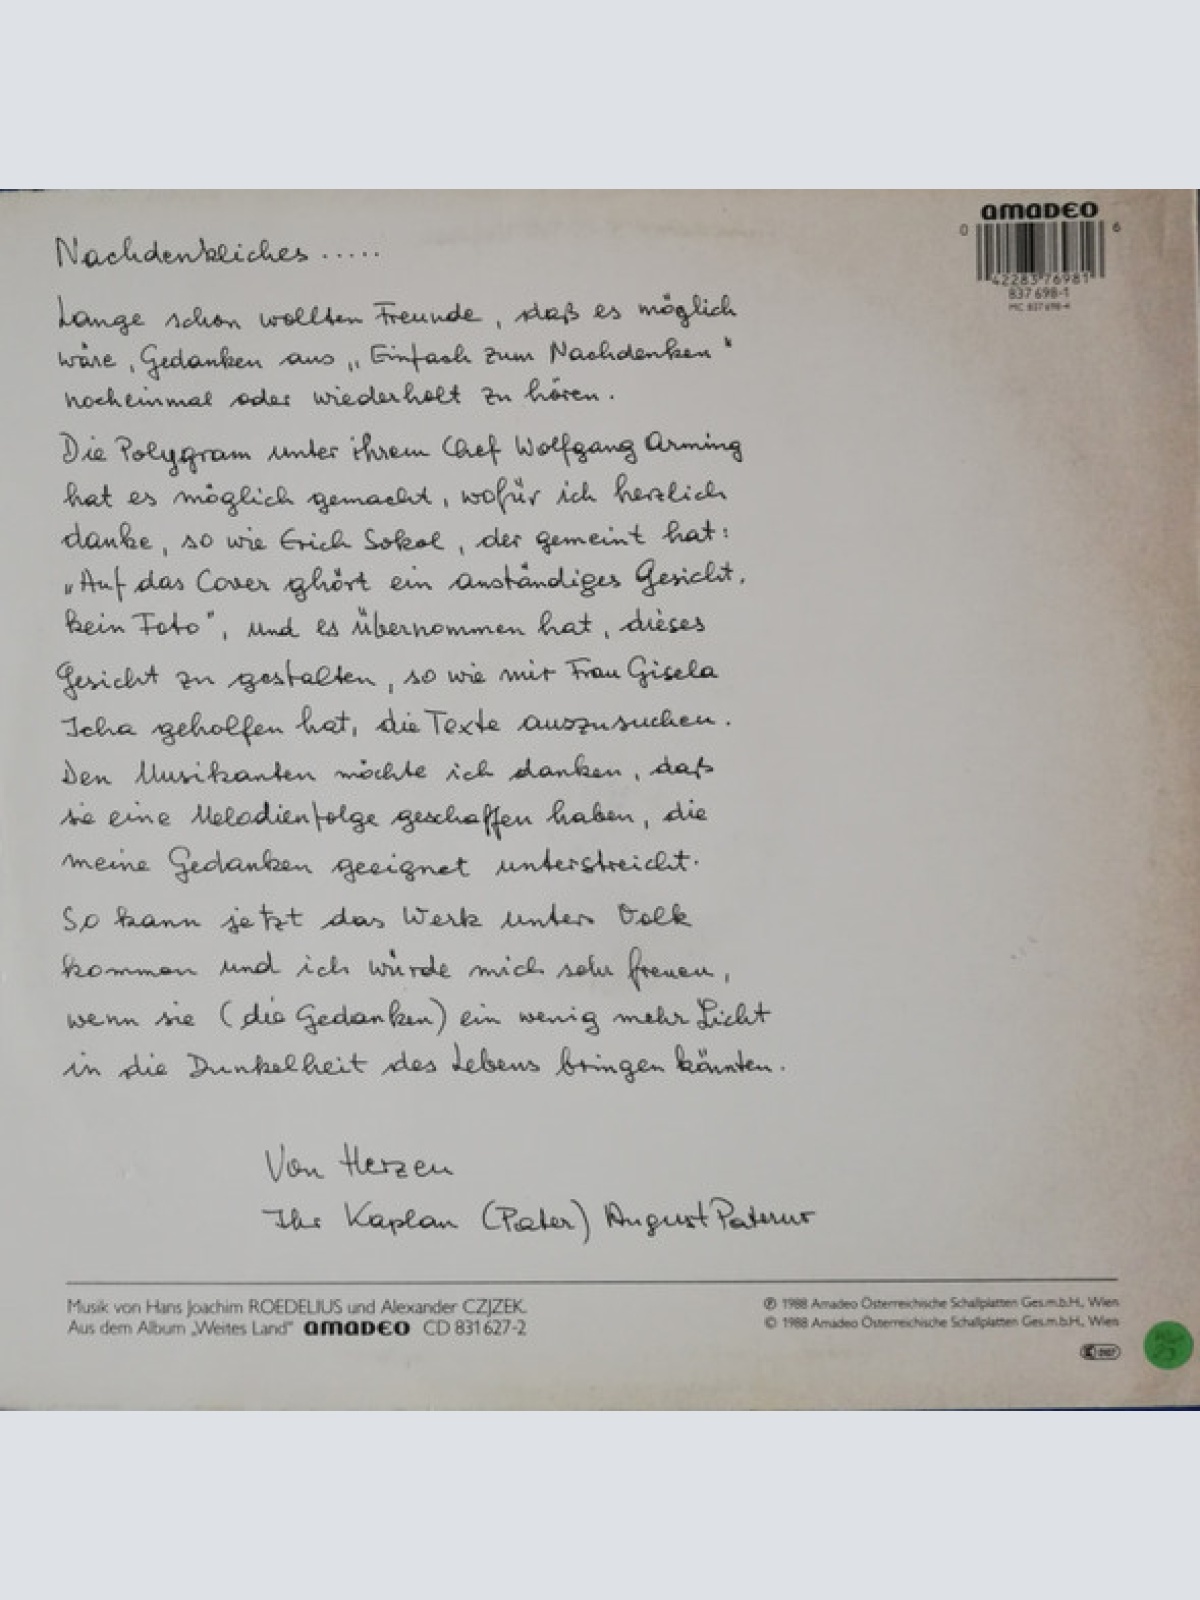 amadeo
0 42285 76981 6
837 698-1
MC 837 698-4
Nachdenkliches .....
Lange schon wollten Freunde, daß es möglich
wäre, Gedanken aus „Einfach zum Nachdenken"
nocheinmal oder wiederholt zu hören.
Die Polygram unter ihrem Chef Wolfgang Arming
hat es möglich gemacht, wofür ich herzlich
danke, so wie Erich Sokol, der gemeint hat:
„Auf das Cover ghört ein anständiges Gesicht,
kein Foto", und es übernommen hat, dieses
Gesicht zu gestalten, so wie mir Frau Gisela
Icha geholfen hat, die Texte auszusuchen.
Den Musikanten möchte ich danken, daß
sie eine Melodienfolge geschaffen haben, die
meine Gedanken geeignet unterstreicht.
So kann jetzt das Werk unters Volk
kommen und ich würde mich sehr freuen,
wenn sie (die Gedanken) ein wenig mehr Licht
in die Dunkelheit des Lebens bringen könnten.
Von Herzen
Ihr Kaplan (Pater) August Paterno
Musik von Hans Joachim ROEDELIUS und Alexander CZJZEK.
Aus dem Album „Weites Land" amadeo CD 831 627-2
℗ 1988 Amadeo Österreichische Schallplatten Ges.m.b.H., Wien
© 1988 Amadeo Österreichische Schallplatten Ges.m.b.H., Wien